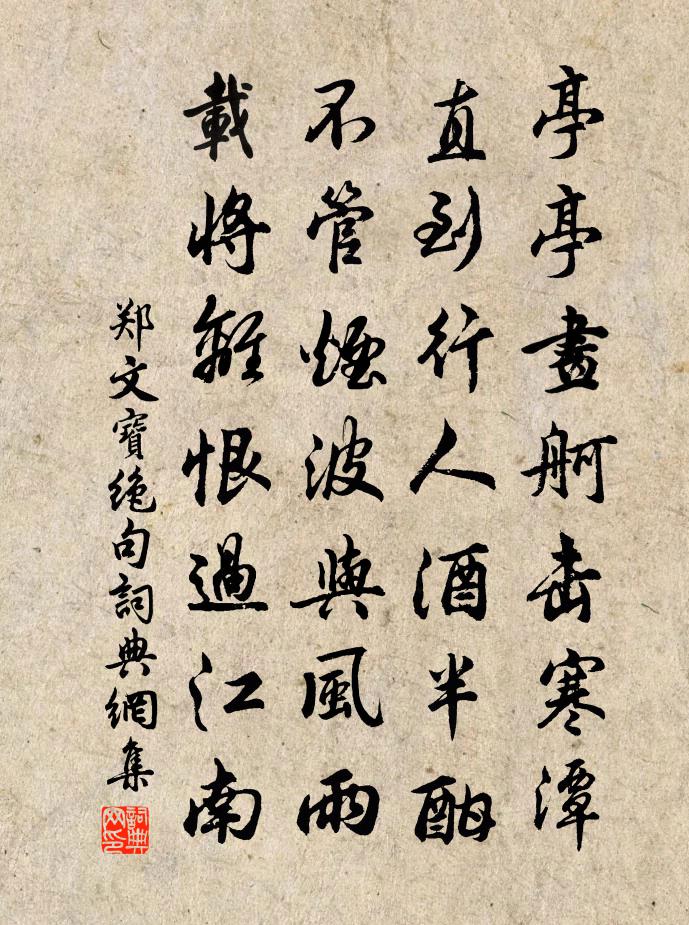 亭亭畫舸击寒潭
直到行人酒半酣
不管煙波與風雨
載將離恨過江南
郑文寶絶句詞典網集
詞典网印